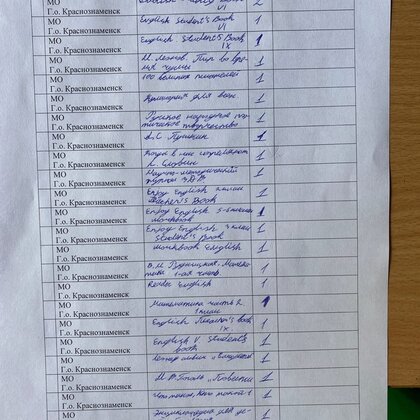 МО
Г.о. Краснознаменск
VI
2
МО
Г.о. Краснознаменск
English Student's Book
VI
1
МО
Г.о. Краснознаменск
English Student's Book
IX
1
МО
Г.о. Краснознаменск
Пир во вре-
мя чумы
1
МО
Г.о. Краснознаменск
100 великих
1
МО
Г.о. Краснознаменск
для всех
1
МО
Г.о. Краснознаменск
Русское народное поэ-
тическое творчество
1
МО
Г.о. Краснознаменск
А.С. Пушкин
1
МО
Г.о. Краснознаменск
Когда в нас
1
МО
Г.о. Краснознаменск
Научно-методический
журнал
1
МО
Г.о. Краснознаменск
Enjoy English
Teacher's Book
1
МО
Г.о. Краснознаменск
Enjoy English 5-6 класс
Workbook
1
МО
Г.о. Краснознаменск
Enjoy English 3 класс
Student's Book
1
МО
Г.о. Краснознаменск
Workbook English
1
МО
Г.о. Краснознаменск
В.Н. Рудницкая, Матема-
тика 1-ая часть
1
МО
Г.о. Краснознаменск
Reader English
1
МО
Г.о. Краснознаменск
Математика часть 2
класс
1
МО
Г.о. Краснознаменск
English Teacher's Book
IX
1
МО
Г.о. Краснознаменск
English V Student's
book
1
МО
Г.о. Краснознаменск
1
МО
Г.о. Краснознаменск
Повести
1
МО
Г.о. Краснознаменск
Что такое. Кто такой
1
МО
Г.о. Краснознаменск
Энциклопедия для де-
1